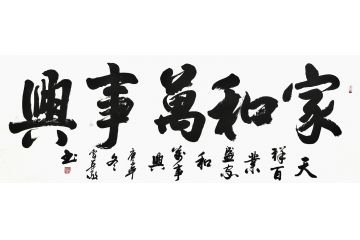 家和萬事興
天祥百業盛家和萬事興
冬
书